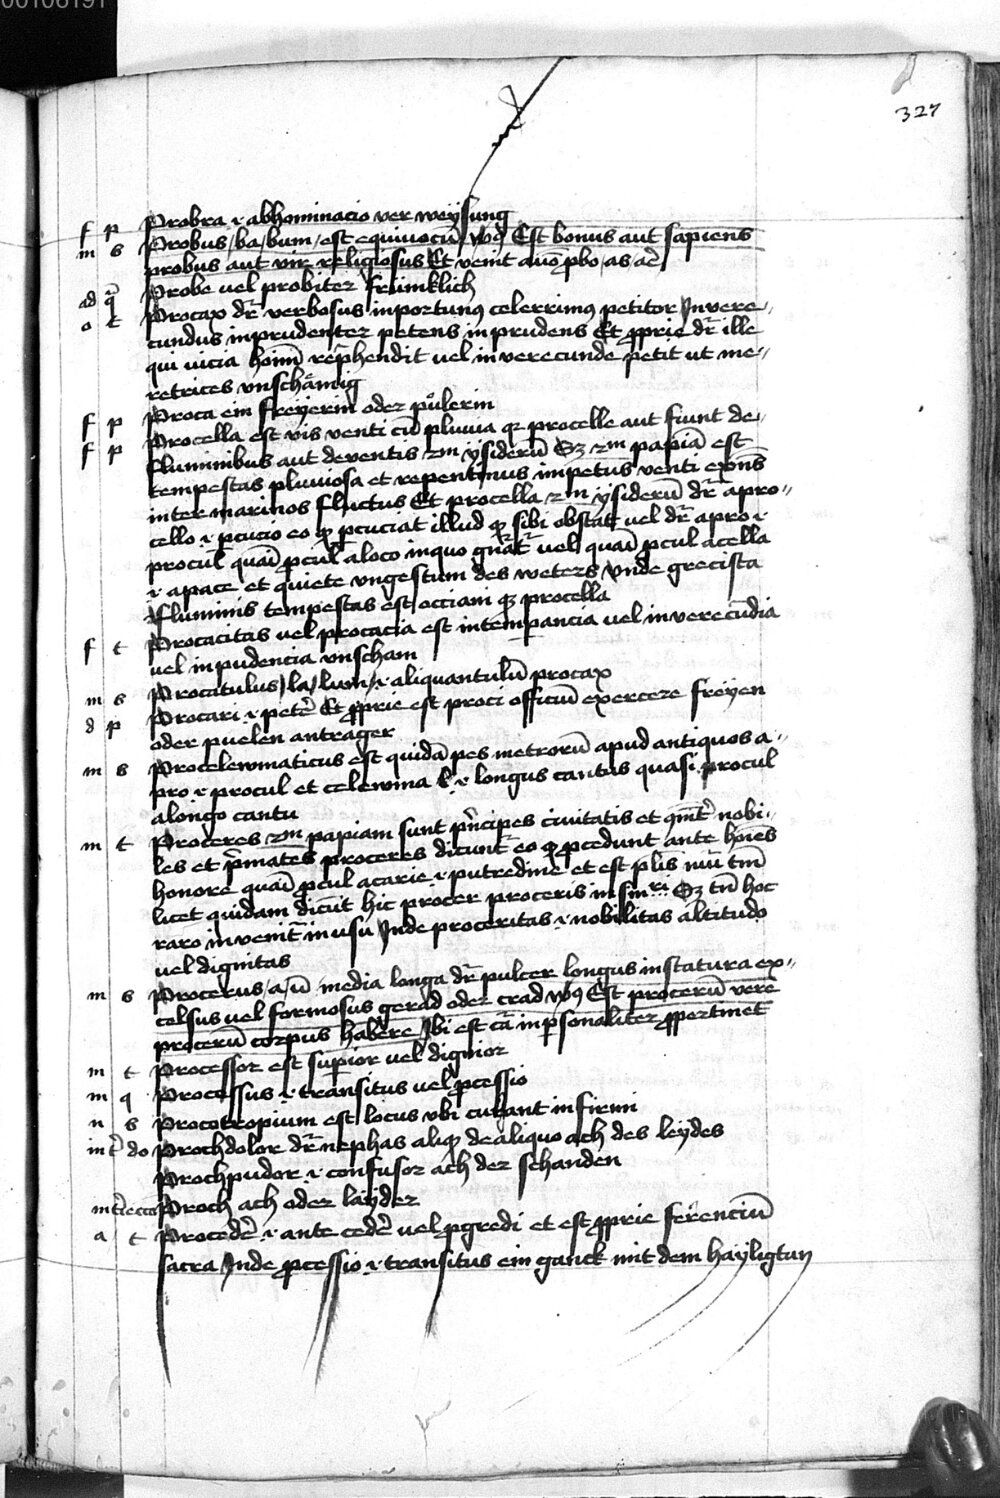 00106191
327
f p Probra .i. abhominacio verweÿsung
m s Probus / ba / bum / est equiuocū vsꝰ Est bonus aut sapiens
probus aut vir religiosus Et venit a uō ꝓbo as ar̄e
ad q̄ Probe uel probiter frümklich
o t Procax dr̄ verbosus inportunꝰ celerrimꝰ petitor Invere⸗
cundus inprudenter petens inprudens Et ꝓprie dr̄ ille
qui uicia hoīm rep̄hendit uel in verecunde petit ut me⸗
retrices vnschämig
f p Proca ein freÿerin oder pulerin
f p Procella est vis venti cū pluuia qꝫ procelle aut fiunt de⸗
fluminibus aut deventis 2m ÿsiderū Sꝫ 2m papiā est
tempestas pluuiosa et repentinus impetus venti exōns
inter marinos fluctus Et procella 2m ÿsiderū dr̄ apro⸗
cello .i. ꝑcucio eo ꝙ ꝑcuciat illud qꝫ sibi obstat uel dr̄ apro .i.
procul quāi ꝓcul aloco inquo gn̄at̄ uel quāi ꝓcul acella
.i. apace et quiete vngestum des weters Vnde grecista
Fluminis tempestas est / occiani qꝫ procella
f t Procacitas uel procacia est intemꝑancia uel inverecūdia
uel inpudencia vnscham
m s Procatulus / la / lum / .i. aliquantulū procax
d p Procari .i. peter̄ Et ꝓprie est proci officiū exercere freÿen
oder puelen antrager
m s Procelewmaticus est quidā pes metrorū apud antiquos a⸗
pro .i. procul et celewma .i. longus cantus quasi procul
alongo cantu
m t Proceres 2m papiam sunt p̄ncipes ciuitatis et nobi⸗
les et p̄mates proceres dicunt̄ eo ꝙ ꝓcedunt ante hoīes
honore quāi ꝓcul acarie .i. putredine et est plīs nūi tm̄
licet quidam dicūt hic procer proceris in sin Sꝫ tn̄ hoc
raro invenit̄ in usu Inde proceritas .i. nobilitas altitudo
uel dignitas
m s Procerus / a / ū media longa dr̄ pulcer longus instatura ex⸗
celsus uel formosus gerad oder crad vsꝰ Est procerū vere
procerū corpus habere / Ibi est cā inꝑsonaliter ꝓpertinet
m t Processor est suꝑior uel dignior
m q Processus .i. transitus uel ꝓcessio
n s Procotropium est locus vbi curant infirmi
int̄ do Prochdolor dr̄ nephas aliqꝫ de aliquo ach des leÿdes
Prochpudor .i. confusor ach der schanden
Proch ach oder läyder
a t Proceder̄ .i. ante ceder̄ uel ꝓgredi et est ꝓprie ferenciū
sacra Inde ꝓcessio .i. transitus ein ganck mit dem haÿligtun